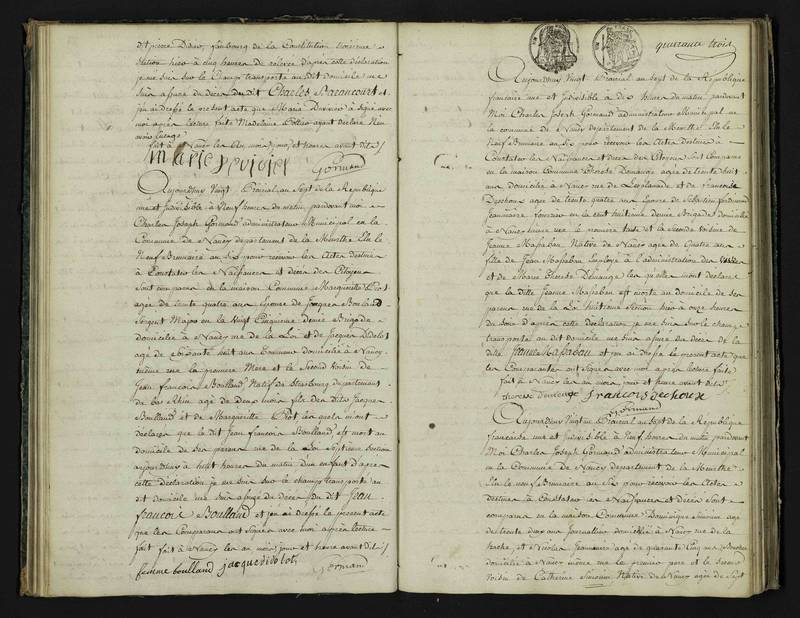 dit pierre Didier, faubourg de la Constitution troisieme
Section hier à cinq heures de relevée d'après cette déclaration
je me suis sur le champ transporté au dit domicile me
suis assuré du décès du dit Charles Barancourt et
j'en ai dressé le present acte que Marie Dervier à signé avec
moi après lecture faite Madelaine ayant déclaré n'en
avoir l'usage
fait à Nancy les an, mois, jour, et heures avant dits
Gormand
Aujourdhuy Vingt Prairial au Sept de la Republique
une et Indivisible à Neuf heures du matin, pardevant moi
Charles Joseph Gormand administrateur Municipal en la
Commune de Nancy departement de la Meurthe Elu le
Neuf Brumaire au Six pour recevoir les Actes destinés
à Constater les Naissances et décès des Citoyens
Sont comparus en la maison Commune Margueritte Crot
agée de trente quatre ans Epouse de Jacques Boulland
Sergent Major en la Vingt Cinquieme demie Brigade
domiciliée à Nancy rue de la Loi et de Jacques Didelot
agé de soixante huit ans Commune domiciliée à Nancy
même rue la premiere Mere et le Second Voisin de
Jean francois Boulland Natif de Strasbourg departement
du bas Rhin agé de Deux mois fils des dits Jacques
Boulland et de Margueritte Crot les quels m'ont
déclarés que le dit Jean francois Boulland, est mort au
domicile de ses parens rue de la Loi Septieme Section
aujourdhuy à huit heures du matin d'un enfant d'apres
cette déclaration je me suis sur le champ transporté au
dit domicile me suis assuré du décès du dit Jean
francois Boulland et j'en ai dressé le présent acte
que les Comparans ont Signés avec moi après lecture
fait fait à Nancy les an mois, jour et heure avant dits
femme boulland jacquedidelot Gormand
quarante trois
Aujourdhuy Vingt Prairial au Sept de la République
francaise une et Indivisible à dix heures du matin pardevant
Moi Charles Joseph Gormand administrateur Municipal en
la commune de Nancy departement de la Meurthe Elu le
Neuf Brumaire au Six pour recevoir les Actes destinés à
Constater les Naissances et décès des Citoyens Sont Comparus
en la maison Commune Therese Demange agée de trente huit
ans domiciliée à Nancy rue de l'Esplanade et de francoise
Dechoux agée de trente quatre ans Epouse de Sebastien ferdinand
Jeanmaire fourier en la cent huitieme demie Brigade domiciliée
à Nancy même rue la premiere tante et la seconde voisine de
Jeanne Massabau Native de Nancy agée de Quatre ans
fille de Jean Massabau Employé à l'administration des
et de Marie Therese Demange les quelles m'ont déclaré
que la ditte Jeanne Massabau est morte au domicile de ses
parens rue de la Loi huitieme Section hier à onze heures
du soir d'apres cette déclaration je me suis sur le champ
transporté au dit domicile me suis assuré du décès de la
ditte Jeanne Massabau et j'en ai dressé le present acte que
les Comparantes ont Signées avec moi après lecture faite
fait à Nancy les an mois jour et heure avant dits
therese demenge francois dechoux
Gormand
Aujourdhuy Vingt un Prairial au Sept de la République
francaise une et Indivisible à Neuf heures du matin pardevant
Moi Charles Joseph Gormand administrateur Municipal
en la Commune de Nancy departement de la Meurthe
Elu le neuf Brumaire au Six pour recevoir les Actes
destinés à Constater les Naissances et Décès Sont
comparus en la maison Commune Dominique Simonin agé
de trente deux ans Journallier domicilié à Nancy rue de la
hache, et Nicolas Jeanmaire agé de quarante Cinq ans
domicilié à Nancy même rue le premier pere et le second
voisin de Catherine Simonin Native de Nancy agée de Sept